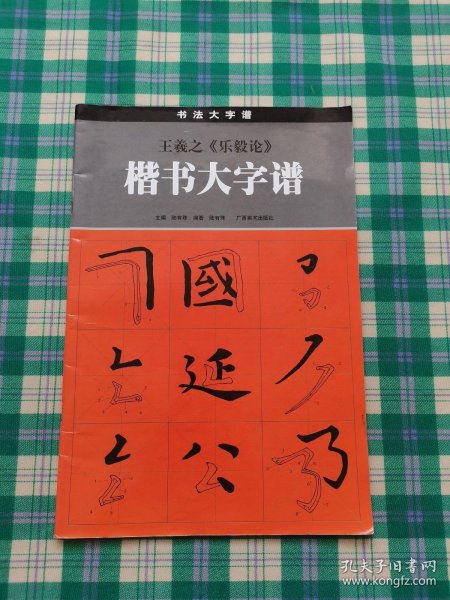 书法大字谱
王羲之《乐毅论》
楷书大字谱
主编 陆有珠 编著 陆有珠 广西美术出版社
國
延
公
孔夫子旧书网
www.kongfz.com